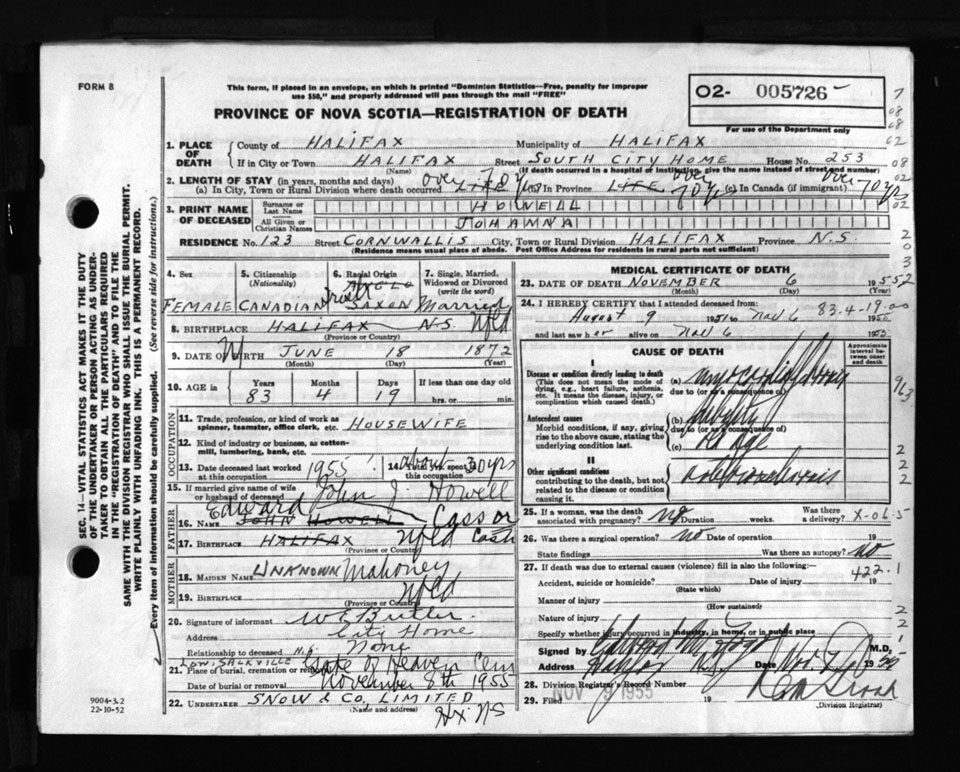 FORM 8
This form, if placed in an envelope, on which is printed "Dominion Statistics—Free, penalty for improper
use $50," and properly addressed will pass through the mail "FREE"
02- 005726
For use of the Department only
PROVINCE OF NOVA SCOTIA—REGISTRATION OF DEATH
1. PLACE OF DEATH
County of HALIFAX Municipality of HALIFAX
If in City or Town HALIFAX Street SOUTH CITY HOME House No. 253
(Name) (If death occurred in a hospital or institution, give name instead of street and number)
2. LENGTH OF STAY (in years, months and days)
(a) In City, Town or Rural Division where death occurred LIFE over 70 yrs (b) in Province LIFE over 70 yrs (c) in Canada (if immigrant) over 70 yrs
3. PRINT NAME OF DECEASED
Surname or Last Name HOWELL
All Given or Christian Names JOHANNA
RESIDENCE No. 123 Street CORNWALLIS City, Town or Rural Division HALIFAX Province N.S.
(Residence means usual place of abode. Post Office Address for residents in rural parts not sufficient)
4. Sex 5. Citizenship (Nationality) 6. Racial Origin 7. Single, Married, Widowed or Divorced (write the word)
FEMALE CANADIAN ANGLO SAXON Irish Married
8. BIRTHPLACE HALIFAX N.S. Nfld
(Province or Country)
9. DATE OF BIRTH JUNE 18 1872
(Month) (Day) (Year)
10. AGE IN Years Months Days If less than one day old
83 4 19 hrs. or min.
OCCUPATION
11. Trade, profession, or kind of work as spinner, teamster, office clerk, etc. HOUSEWIFE
12. Kind of industry or business, as cotton-mill, lumbering, bank, etc.
13. Date deceased last worked at this occupation 1955 14. Total yrs. spent in this occupation about 30 yrs
15. If married give name of wife or husband of deceased John J. Howell
FATHER
16. NAME JOHN HOWELL Edward Cass or
17. BIRTHPLACE HALIFAX Nfld Cash
(Province or Country)
MOTHER
18. MAIDEN NAME UNKNOWN Mahoney
19. BIRTHPLACE Nfld
(Province or Country)
20. Signature of informant W E Butler
Address City Home
Relationship to deceased None
21. Place of burial, cremation or removal LOW. SACKVILLE N.S. Gate of Heaven Cem
Date of burial or removal November 8th 1955
22. UNDERTAKER SNOW & CO. LIMITED
(Name and address)
Hx. NS
MEDICAL CERTIFICATE OF DEATH
23. DATE OF DEATH NOVEMBER 6 1955
(Month) (Day) (Year)
24. I HEREBY CERTIFY that I attended deceased from:
August 9 to Nov 6 83-4-19
and last saw her alive on Nov 6
CAUSE OF DEATH
Approximate interval between onset and death
I
Disease or condition directly leading to death
(This does not mean the mode of dying, e.g., heart failure, asthenia, etc. It means the disease, injury, or complication which caused death.)
(a)
due to (or as a consequence of)
Antecedent causes
Morbid conditions, if any, giving rise to the above cause, stating the underlying condition last.
(b)
due to (or as a consequence of)
(c) Old Age
II
Other significant conditions
contributing to the death, but not related to the disease or condition causing it.
25. If a woman, was the death associated with pregnancy? no Duration weeks. Was there a delivery? X-06.5
26. Was there a surgical operation? no Date of operation 19
State findings Was there an autopsy? no
27. If death was due to external causes (violence) fill in also the following:— 422.1
Accident, suicide or homicide? Date of injury 19
(State which)
Manner of injury
(How sustained)
Nature of injury
Specify whether injury occurred in industry, in home, or in public place
Signed by M.D.
Address Halifax N.S. Date Nov. 7
28. Division Registrar's Record Number
29. Filed NOV 9 1955 19
(Division Registrar)
SEC. 14—VITAL STATISTICS ACT MAKES IT THE DUTY
OF THE UNDERTAKER OR PERSON ACTING AS UNDER-
TAKER TO OBTAIN ALL THE PARTICULARS REQUIRED
IN THE "REGISTRATION OF DEATH" AND TO FILE THE
SAME WITH THE DIVISION REGISTRAR WHO SHALL ISSUE THE BURIAL PERMIT.
WRITE PLAINLY WITH UNFADING INK. THIS IS A PERMANENT RECORD.
Every item of information should be carefully supplied. (See reverse side for instructions.)
9004-3.2
22-10-52